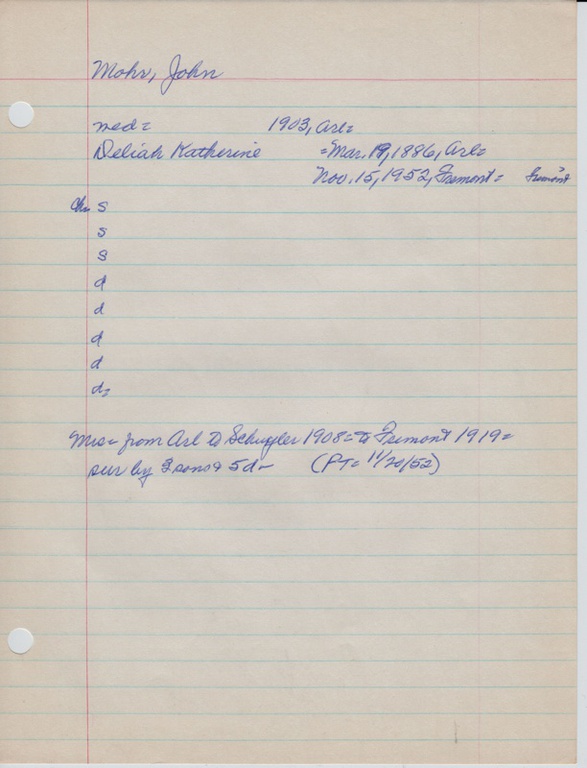 Mohr, John
med= 1903, Arl=
Deliah Katherine =Mar. 19, 1886, Arl=
Nov. 15, 1952, Fremont= Fremont
ch= s
s
s
d
d
d
d
d=
Mrs= from Arl to Schuyler 1908= to Fremont 1919=
sur by 3 sons & 5d- (PT= 11/20/52)